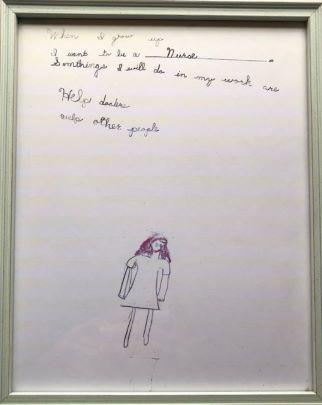 When I grow up
I want to be a Nurse.
Somthings I will do in my work are
Help doctors
other people